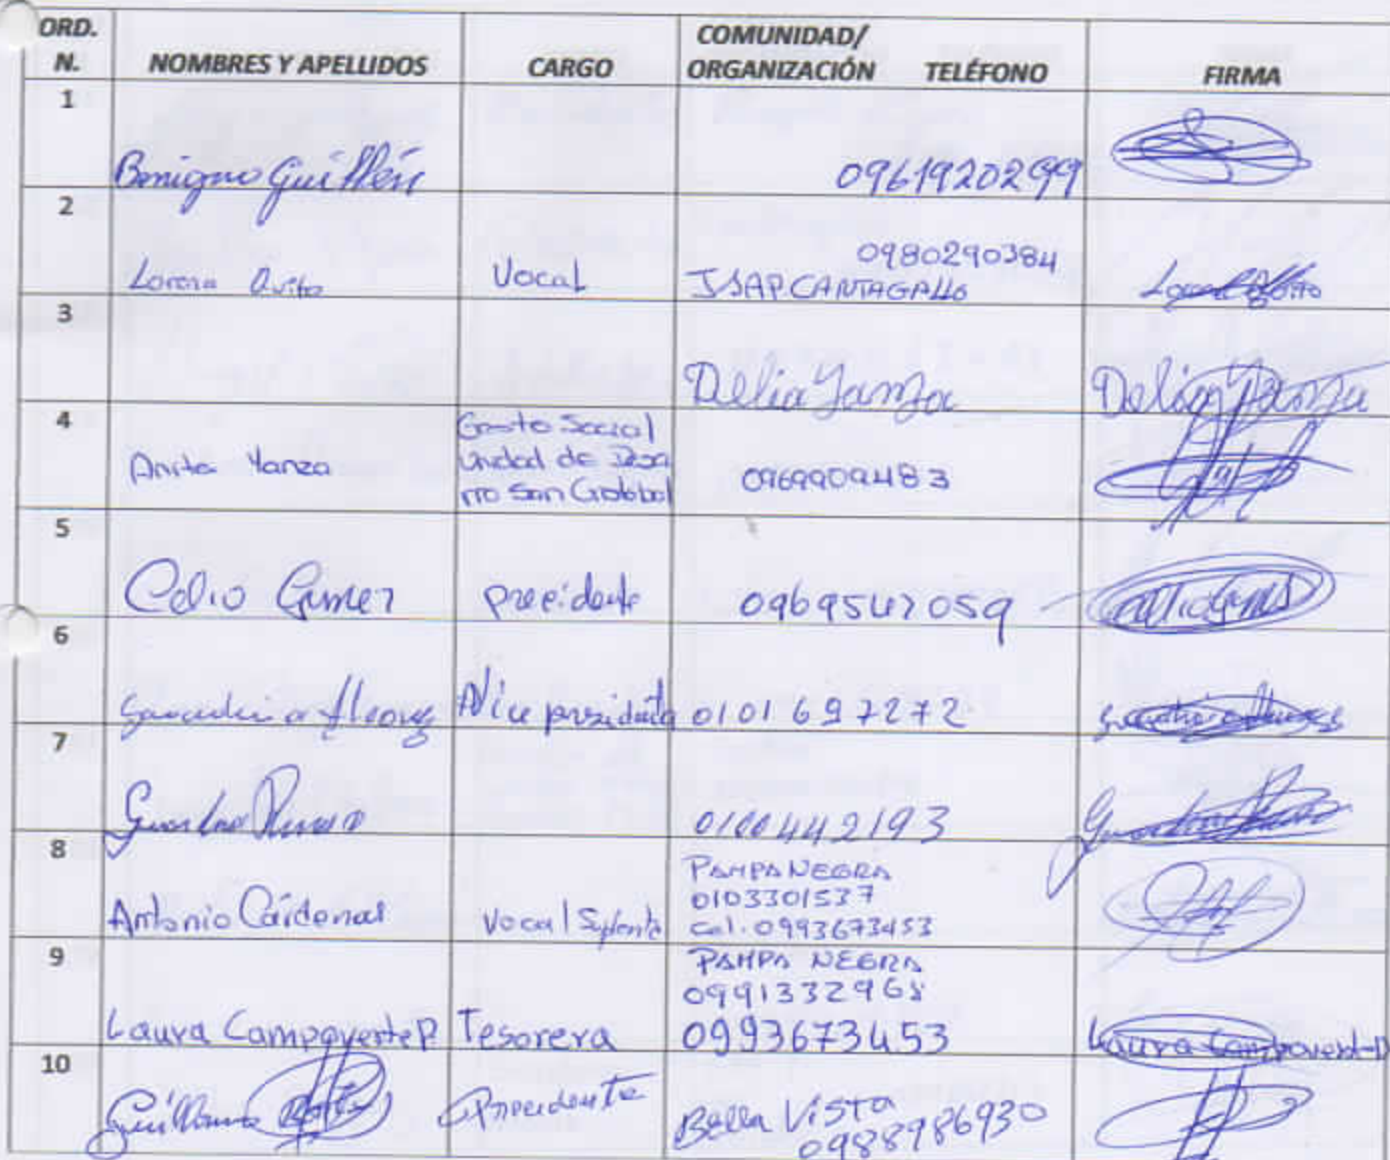 ORD.
N.
NOMBRES Y APELLIDOS
CARGO
COMUNIDAD/
ORGANIZACIÓN TELÉFONO
FIRMA
1
Benigno Guillén
0961920299
2
Lorena Avita
Vocal
0980290384
JSAP.CANTAGALLO
3
Delia Yanza
Delia Yanza
4
Anita Yanza
Unidad de
0969909483
5
Celio
presidente
0969567059
6
0101697272
7
0100442193
8
Antonio Cárdenas
Vocal Suplente
PAMPA NEGRA
0103301537
cel. 0993673453
9
Laura Campoverde P
Tesorera
PAMPA NEGRA
0991332968
0993673453
Laura Campoverde P
10
Guillermo
Presidente
Bella Vista
0988986930